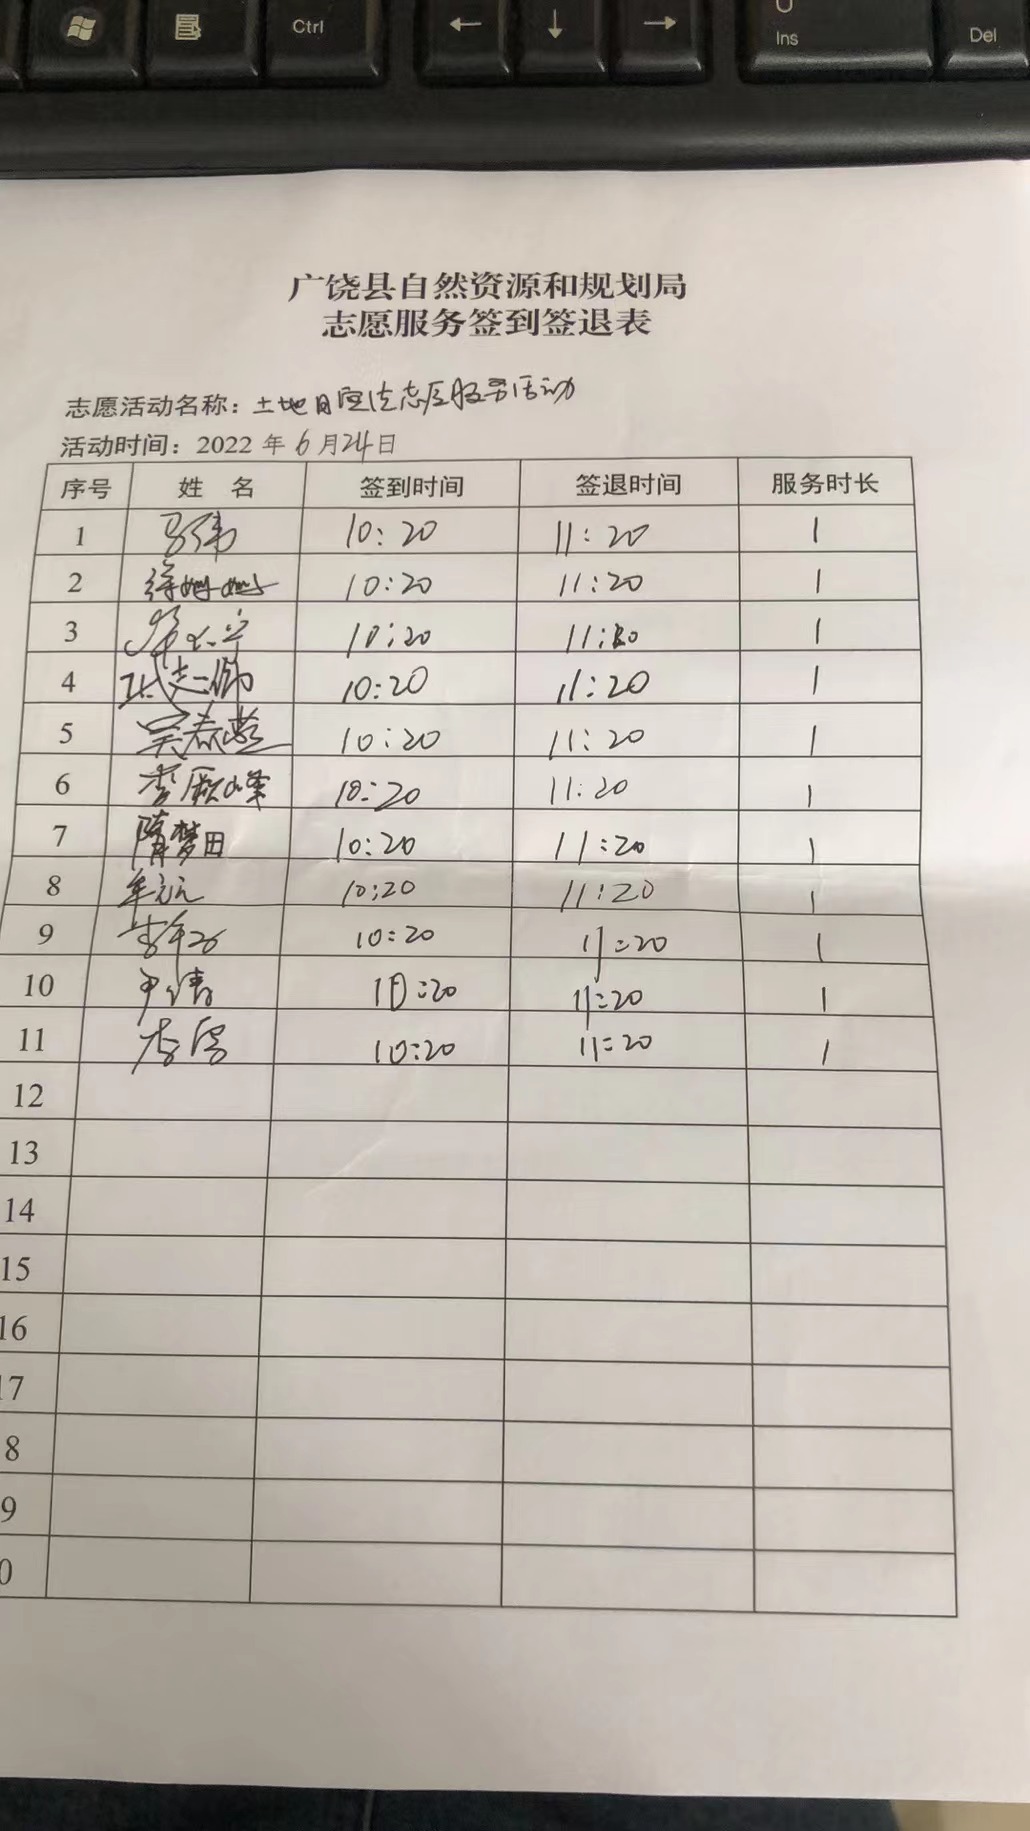 Ctrl
←
↓
→
Ins
Del
广饶县自然资源和规划局
志愿服务签到签退表
志愿活动名称：土地日宣传志愿服务活动
活动时间：2022 年 6 月 24 日
序号 姓 名 签到时间 签退时间 服务时长
1 马伟 10:20 11:20 1
2 徐姗姗 10:20 11:20 1
3 10:20 11:20 1
4 10:20 11:20 1
5 吴春燕 10:20 11:20 1
6 李颖峰 10:20 11:20 1
7 隋梦田 10:20 11:20 1
8 10:20 11:20 1
9 10:20 11:20 1
10 尹靖 10:20 11:20 1
11 10:20 11:20 1
12
13
14
15
16
17
8
9
0